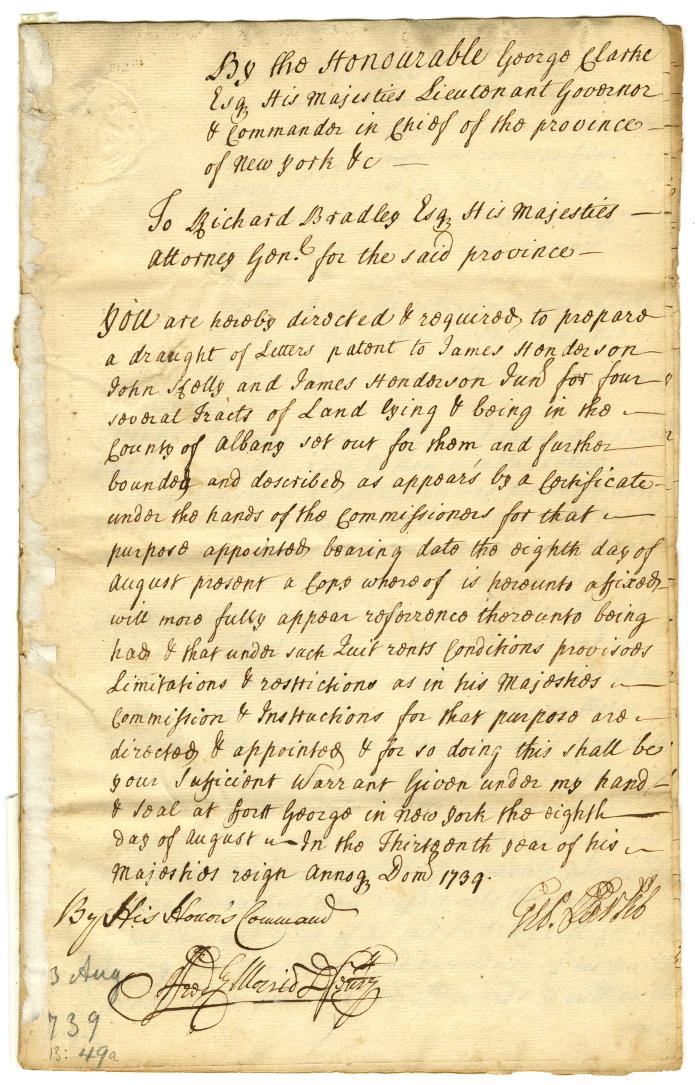 By the Honourable George Clarke
Esqr His Majesties Lieutenant Governor
& Commander in Chief of the province
of New york &c
To Richard Bradley Esqr His Majesties
Attorney Genl for the said province
You are hereby directed & required to prepare
a draught of Letters patent to James Henderson
John Kelly and James Henderson Junr for four
several Tracts of Land lying & being in the
County of Albany set out for them and further
bounded and described as appears by a Certificate
under the hands of the Commissioners for that
purpose appointed bearing date the eighth day of
August present a Copy whereof is hereunto affixed
will more fully appear referrence thereunto being
had & that under such Quit rents Conditions provisoes
Limitations & restrictions as in his Majesties
Commission & Instructions for that purpose are
directed & appointed & for so doing this shall be
your sufficient Warrant Given under my hand
& seal at fort George in new york the eighth
day of August In the Thirteenth year of his
Majesties reign Annoq Dom 1739.
By His Honour's Command
Geo. Clarke
Fred Morris D Secry
3 Aug
739
13: 49a